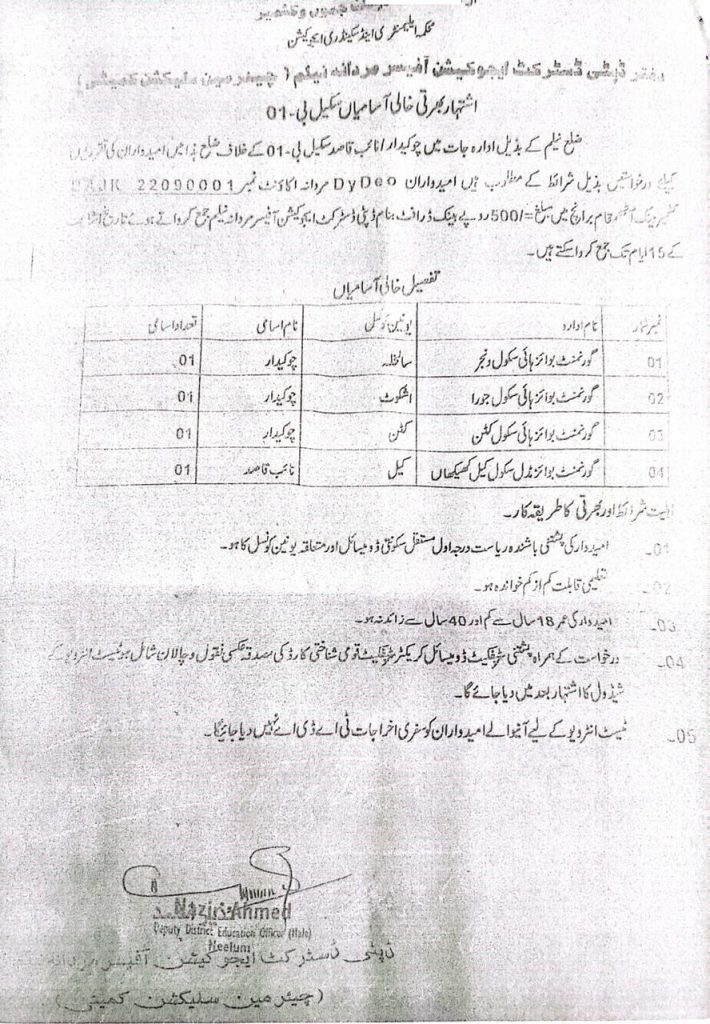 جموں و کشمیر
محکمہ ایلیمنٹری اینڈ سیکنڈری ایجوکیشن
دفتر ڈپٹی ڈسٹرکٹ ایجوکیشن آفیسر مردانہ نیلم (چیئرمین سلیکشن کمیٹی)
اشتہار بھرتی خالی آسامیاں سکیل بی-01
ضلع نیلم کے بذیل ادارہ جات میں چوکیدار/نائب قاصد سکیل بی-01 کے خلاف ضلع ہذا میں امیدواران کی تقرریوں
کیلئے درخواستیں بذیل شرائط کے مطابق ہیں امیدواران DyDeo مردانہ اکاؤنٹ نمبر 22090001
بینک آٹھمقام برانچ میں مبلغ =/500 روپے بینک ڈرافٹ بنام ڈپٹی ڈسٹرکٹ ایجوکیشن آفیسر مردانہ نیلم جمع کرواتے ہوئے تاریخ اشاعت
کے 15 ایام تک جمع کرواسکتے ہیں۔
تفصیل خالی آسامیاں
نمبر شمار نام ادارہ یونین کونسل نام اسامی تعداد اسامی
01 گورنمنٹ بوائز ہائی سکول دنجر سائنلہ چوکیدار 01
02 گورنمنٹ بوائز ہائی سکول جورا اشکوٹ چوکیدار 01
03 گورنمنٹ بوائز ہائی سکول کٹن کٹن چوکیدار 01
04 گورنمنٹ بوائز مڈل سکول کیل کیل نائب قاصد 01
اہلیت شرائط اور بھرتی کا طریقہ کار۔
01۔ امیدوار کی پشتنی باشندہ ریاست درجہ اول مستقل سکونتی ڈومیسائل اور متعلقہ یونین کونسل کا ہو۔
02۔ تعلیمی قابلت کم از کم خواندہ ہو۔
03۔ امیدوار کی عمر 18 سال سے کم اور 40 سال سے زائد نہ ہو۔
04۔ درخواست کے ہمراہ پشتنی سرٹیفکیٹ ڈومیسائل کریکٹر سرٹیفکیٹ قومی شناختی کارڈ کی مصدقہ عکسی نقول و چالان شامل ہو ٹیسٹ انٹرویو کے
شیڈول کا اشتہار بعد میں دیا جائے گا۔
05۔ ٹیسٹ انٹرویو کے لیے آنیوالے امیدواران کو سفری اخراجات ٹی اے ڈی اے نہیں دیا جائیگا۔
Nazir Ahmed
Deputy District Education Officer (Male)
Neelum
ڈپٹی ڈسٹرکٹ ایجوکیشن آفیسر مردانہ
(چیئرمین سلیکشن کمیٹی)